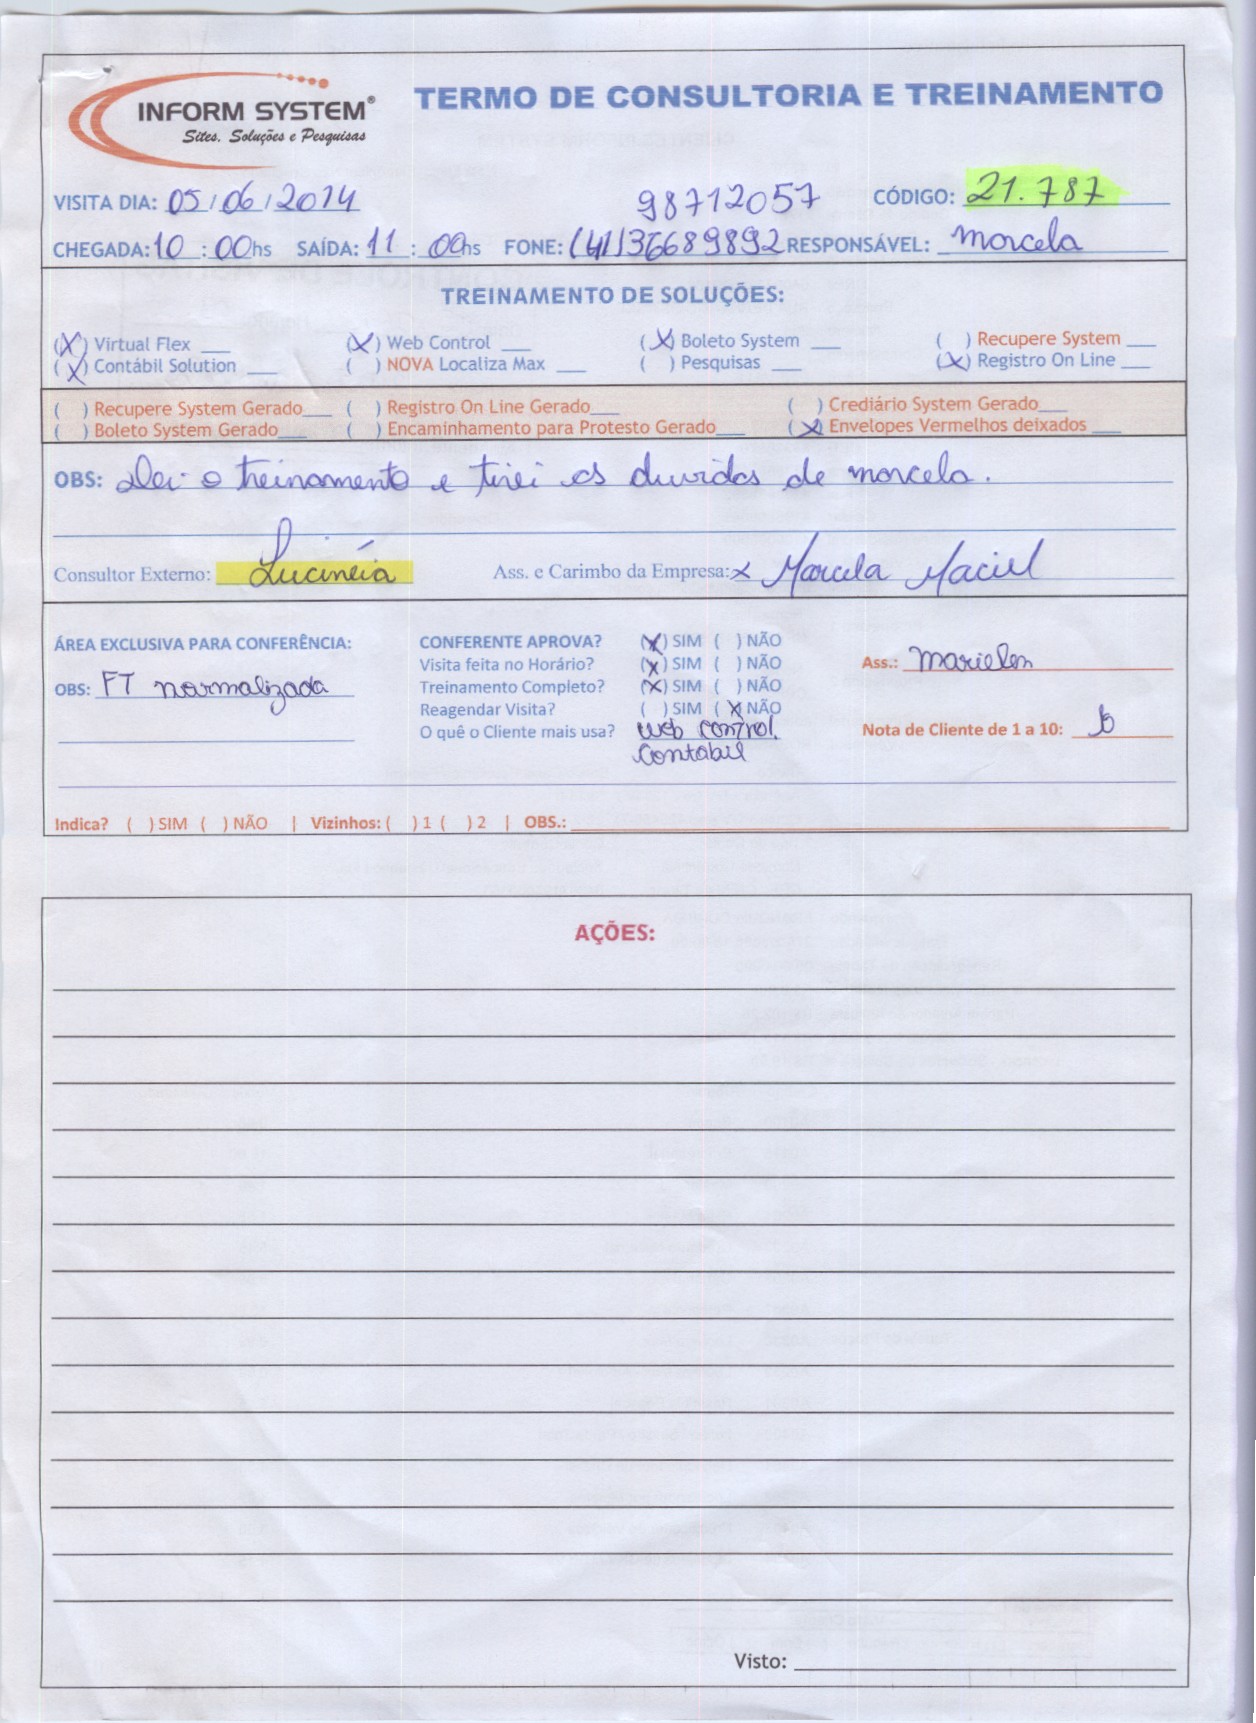 INFORM SYSTEM®
Sites, Soluções e Pesquisas
TERMO DE CONSULTORIA E TREINAMENTO
98712057
VISITA DIA: 05/06/2014 CÓDIGO: 21.787
CHEGADA: 10:00hs SAÍDA: 11:00hs FONE: (41)36689892 RESPONSÁVEL: Marcela
TREINAMENTO DE SOLUÇÕES:
(X) Virtual Flex ___ (X) Web Control ___ (X) Boleto System ___ ( ) Recupere System ___
(X) Contábil Solution ___ ( ) NOVA Localiza Max ___ ( ) Pesquisas ___ (X) Registro On Line ___
( ) Recupere System Gerado___ ( ) Registro On Line Gerado___ ( ) Crediário System Gerado___
( ) Boleto System Gerado___ ( ) Encaminhamento para Protesto Gerado___ (X) Envelopes Vermelhos deixados ___
OBS: Dei o treinamento e tirei as duvidas de marcela.
Consultor Externo: Lucinéia Ass. e Carimbo da Empresa: x Marcela Maciel
ÁREA EXCLUSIVA PARA CONFERÊNCIA: CONFERENTE APROVA? (X) SIM ( ) NÃO
Visita feita no Horário? (X) SIM ( ) NÃO Ass.: Marielen
OBS: FT normalizada Treinamento Completo? (X) SIM ( ) NÃO
Reagendar Visita? ( ) SIM (X) NÃO
O quê o Cliente mais usa? Web control. Nota de Cliente de 1 a 10:
Contabil
Indica? ( ) SIM ( ) NÃO | Vizinhos: ( ) 1 ( ) 2 | OBS.:
AÇÕES:
Visto: